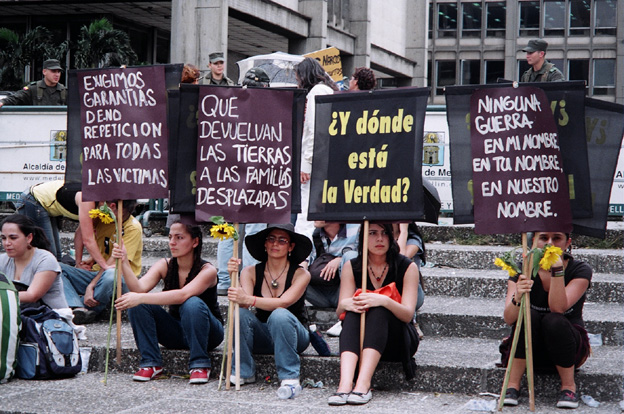 EXIGIMOS
GARANTÍAS
DE NO
REPETICION
PARA TODAS
LAS VICTIMAS
QUE
DEVUELVAN
LAS TIERRAS
A LAS FAMILIAS
DESPLAZADAS
¿Y dónde
está
la Verdad?
NINGUNA
GUERRA
EN MI NOMBRE,
EN TU NOMBRE,
EN NUESTRO
NOMBRE.
Alcaldía de